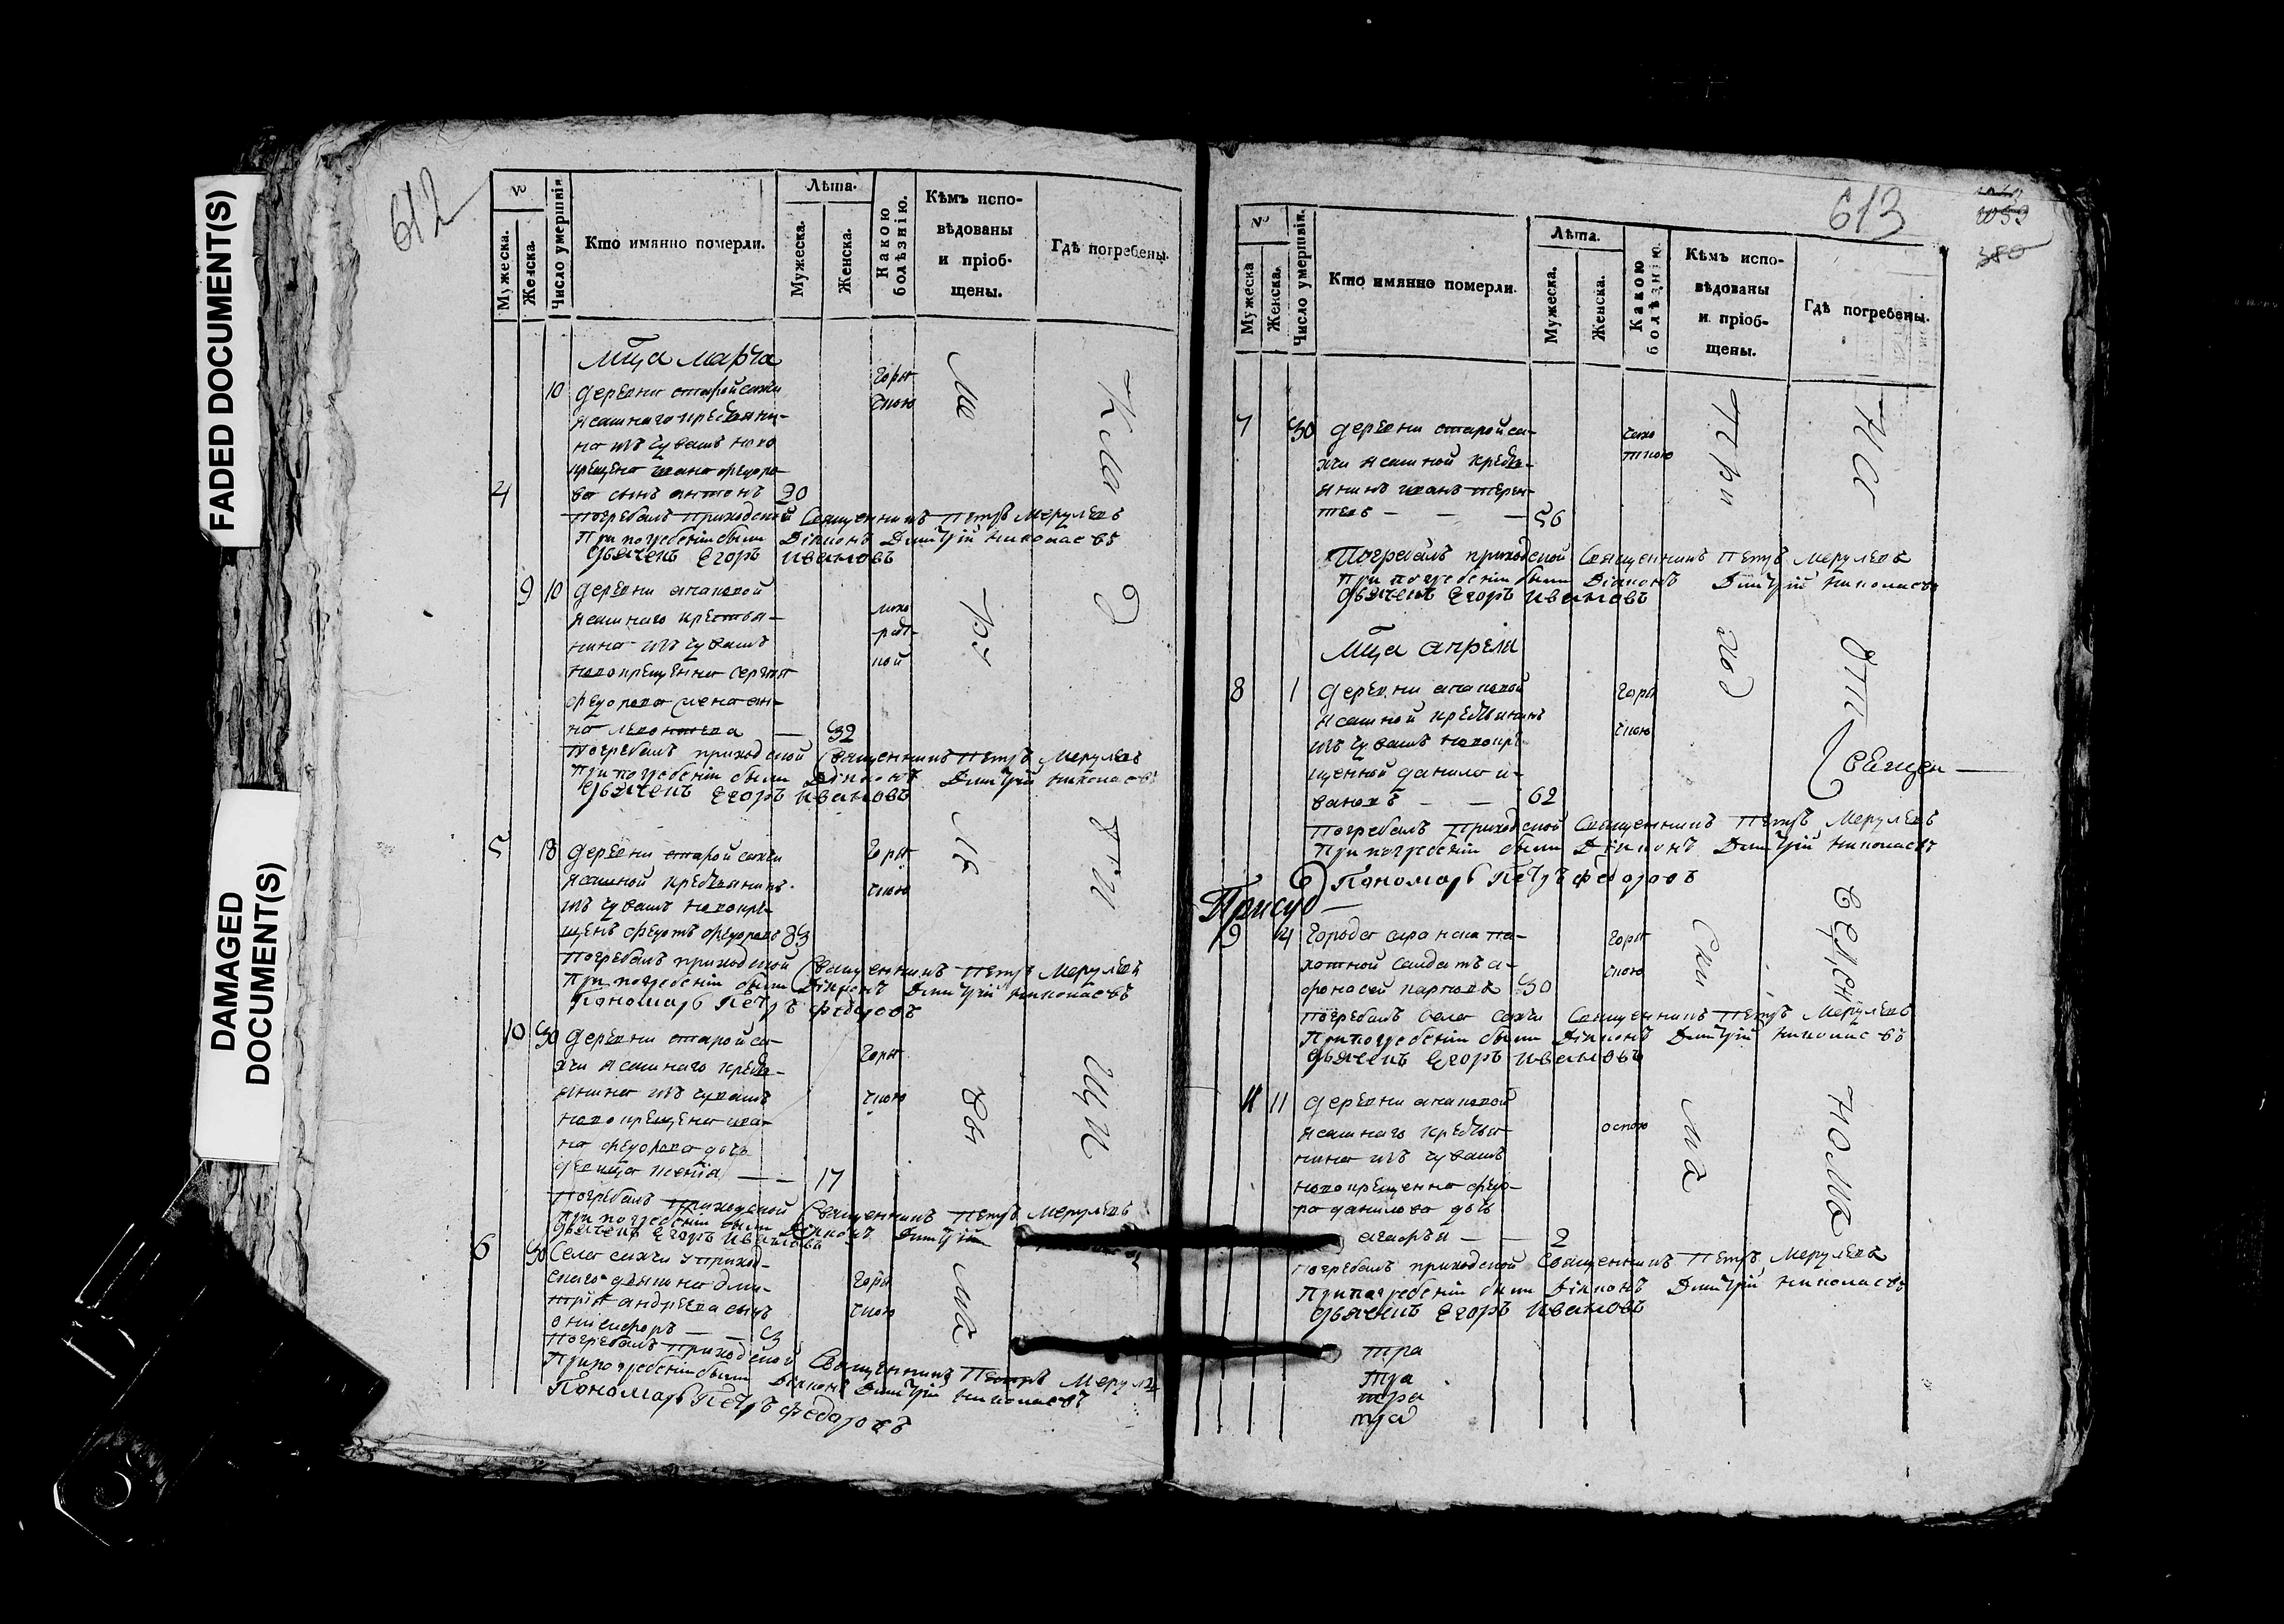 FADED DOCUMENT(S)
DAMAGED
DOCUMENT(S)
612
№
Мужеска.
Женска.
Число умершвія.
Кто имянно померли.
Лѣта.
Мужеска.
Женска.
Какою
болѣзнію.
Кѣмъ испо-
вѣдованы
и пріоб-
щены.
Гдѣ погребены.
Мца марта
10 деревни старой сахчи
горя
чкою
ясашнаго крестьяни-
на изъ чувашъ ново
крещена ивана федоро-
4 ва сынъ антонъ 20
Погребалъ приходской Священникъ Петръ Мерулевъ
При погребеніи были Діяконъ Дмитрій николаевъ
Дьячекъ Егоръ Ивановъ
9 10 деревни
ясашнаго крестья-
нина изъ чувашъ
новокрещенна сергея
федорова жена ан-
на левонтева — 32
Погребалъ приходской Священникъ Петръ Мерулевъ
При погребеніи были Діяконъ Дмитрій николаевъ
Дьячекъ Егоръ Ивановъ
5 18 деревни старой сахчи
горя
чкою
ясашной крестьянинъ
изъ чувашъ новокре-
щенъ федотъ федоровъ 83
Погребалъ приходской Священникъ Петръ Мерулевъ
При погребеніи были Діяконъ Дмитрій николаевъ
Пономарь Петръ Федоровъ
10 30 деревни старой са-
горя
чкою
хчи ясашнаго кресть-
янина изъ чувашъ
новокрещена ива-
на федорова дочь
девица — — 17
Погребалъ приходской Священникъ Петръ Мерулевъ
При погребеніи были Діяконъ Дмитрій
Дьячекъ Егоръ Ивановъ
6 30 Села сахчи приход-
горя
чкою
скаго дьякона дми-
трія андреева сынъ
онисифоръ — — 3
Погребалъ приходской Священникъ Петръ
При погребеніи были Діяконъ Дмитрій николаевъ
Пономарь Петръ Федоровъ
613
1059
380
№
Мужеска
Женска.
Число умершвія.
Кто имянно померли.
Лѣта.
Мужеска.
Женска.
Какою
болѣзнію.
Кѣмъ испо-
вѣдованы
и пріоб-
щены.
Гдѣ погребены.
7 30 деревни старой са-
чахо
ткою
хчи ясашной кресть-
янинъ иванъ терен-
тевъ — — — 56
Погребалъ приходской Священникъ Петръ Мерулевъ
При погребеніи были Діяконъ Дмитрій николаевъ
Дьячекъ Егоръ Ивановъ
Мца апреля
8 1 деревни
горя
чкою
ясашной крестьянинъ
изъ чувашъ новокре-
щеной данило и-
вановъ — — 62
Погребалъ приходской Священникъ Петръ Мерулевъ
При погребеніи были Діяконъ Дмитрій николаевъ
Пономарь Петръ Федоровъ
Присуд
9 4 Города
горя
чкою
хотной салдатъ а-
фонасей карповъ 30
погребалъ села сахчи Священникъ Петръ Мерулевъ
При погребеніи были Діяконъ Дмитрій николаевъ
Дьячекъ Егоръ Ивановъ
11 11 деревни
оспою
ясашнаго крестья-
нина изъ чувашъ
новокрещенна федо-
ра данилова дочь
агафья — — 2
погребалъ приходской Священникъ Петръ Мерулевъ
При погребеніи были Діяконъ Дмитрій николаевъ
Дьячекъ Егоръ Ивановъ
тра
тра
тра
тра